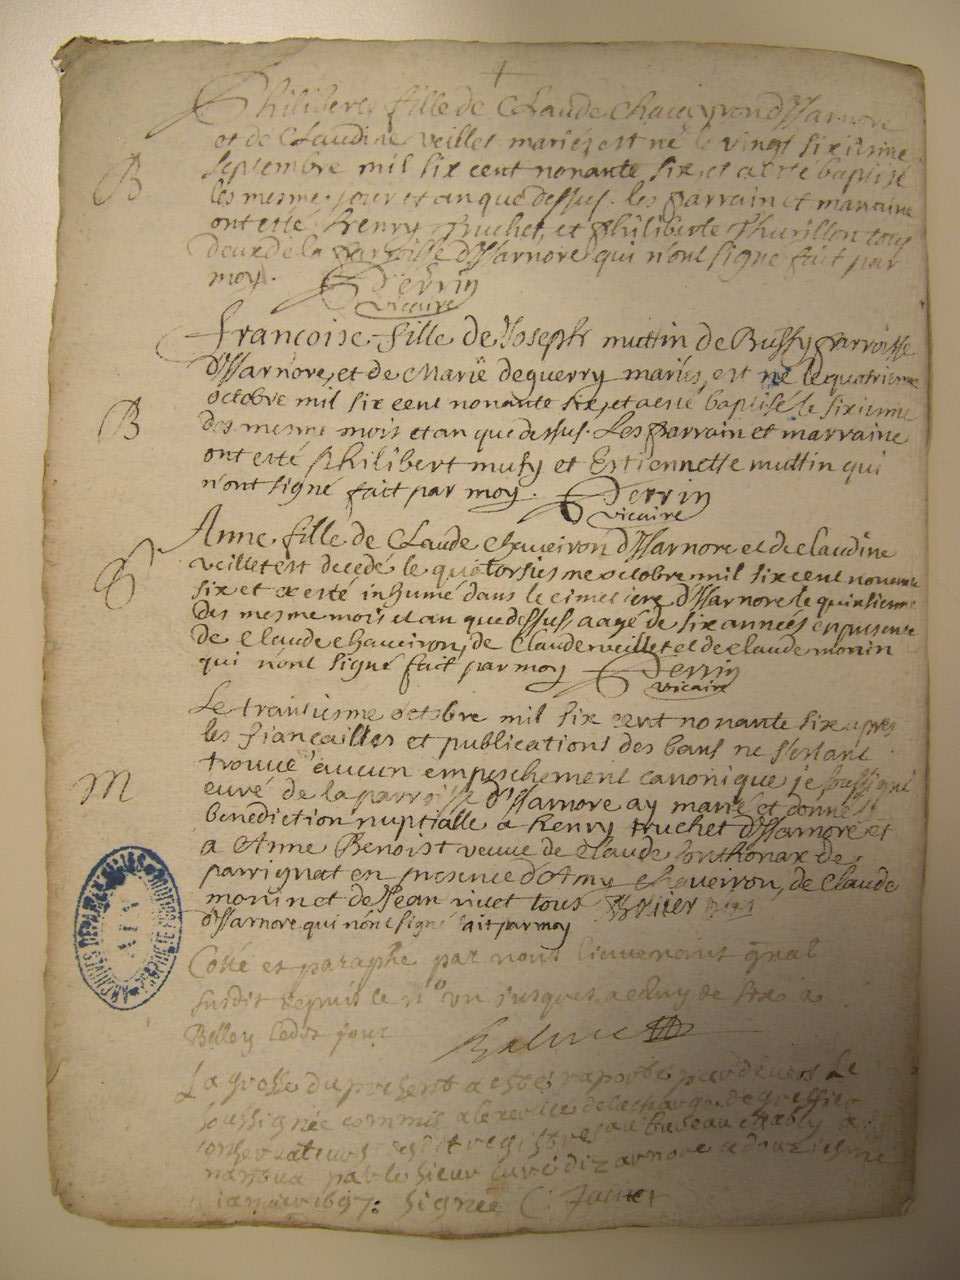 Philiberte fille de Claude Chaveyron d'Isarnore
et de Claudine veillet mariez est né le vingt sixiesme
B
septembre mil six cent nonante six, et a esté baptisé
les mesme jour et an que dessus. les parrain et marraine
ont esté henry truchet, et philiberte thurillon tous
deux de la parroisse d'Isarnore qui n'ont signé fait par
moy. Perrin
vicaire
françoise fille de Joseph muttin de Bussy parroisse
d'Isarnore, et de Marie deguerry mariés, est né le quatriesme
octobre mil six cent nonante six, et a esté baptisé le sixiesme
B
des mesme mois et an que dessus. Les parrain et marraine
ont esté philibert musy et Estiennette muttin qui
n'ont signé fait par moy. Perrin
vicaire
Anne fille de Claude Chaveiron d'Isarnore et de claudine
veillet est decedé le quatorsiesme octobre mil six cent nonante
S
six et a esté inhumé dans le cimetiere d'Isarnore le quinsiesme
des mesme mois et an que dessus aagé de six années en presence
de claude chaveiron, de Claude veillet et de claude monin
qui n'ont signé fait par moy Perrin
vicaire
Le troisiesme octobre mil six cent nonante six apres
les fiançailles et publications des bans ne s'estant
trouvé aucun empeschement canonique, je soussigné
M
curé de la parroisse d'Isarnore ay marié et donné la
benediction nuptialle à henry truchet d'Isarnore et
a Anne Benoist veuve de claude sonthonax de
parrignat en presence d'Amy Chaveiron, de claude
monin et de Jean nivet tous
d'Isarnore qui n'ont signé fait par moy
ARCHIVES DEPARTEMENTALES
AIN
Cotté et paraphé par nous lieutenant gnal
susdit depuis le n° un jusques a celluy de six a
Belley ledit jour
La grosse du present a esté raporté par devers le
soussignée commis a lexercice de la charge de greffier
conservateurs desdit registres au bureau estably a
nantua par le sieur curé dizarnore ce douziesme
janvier 1697: signée C: